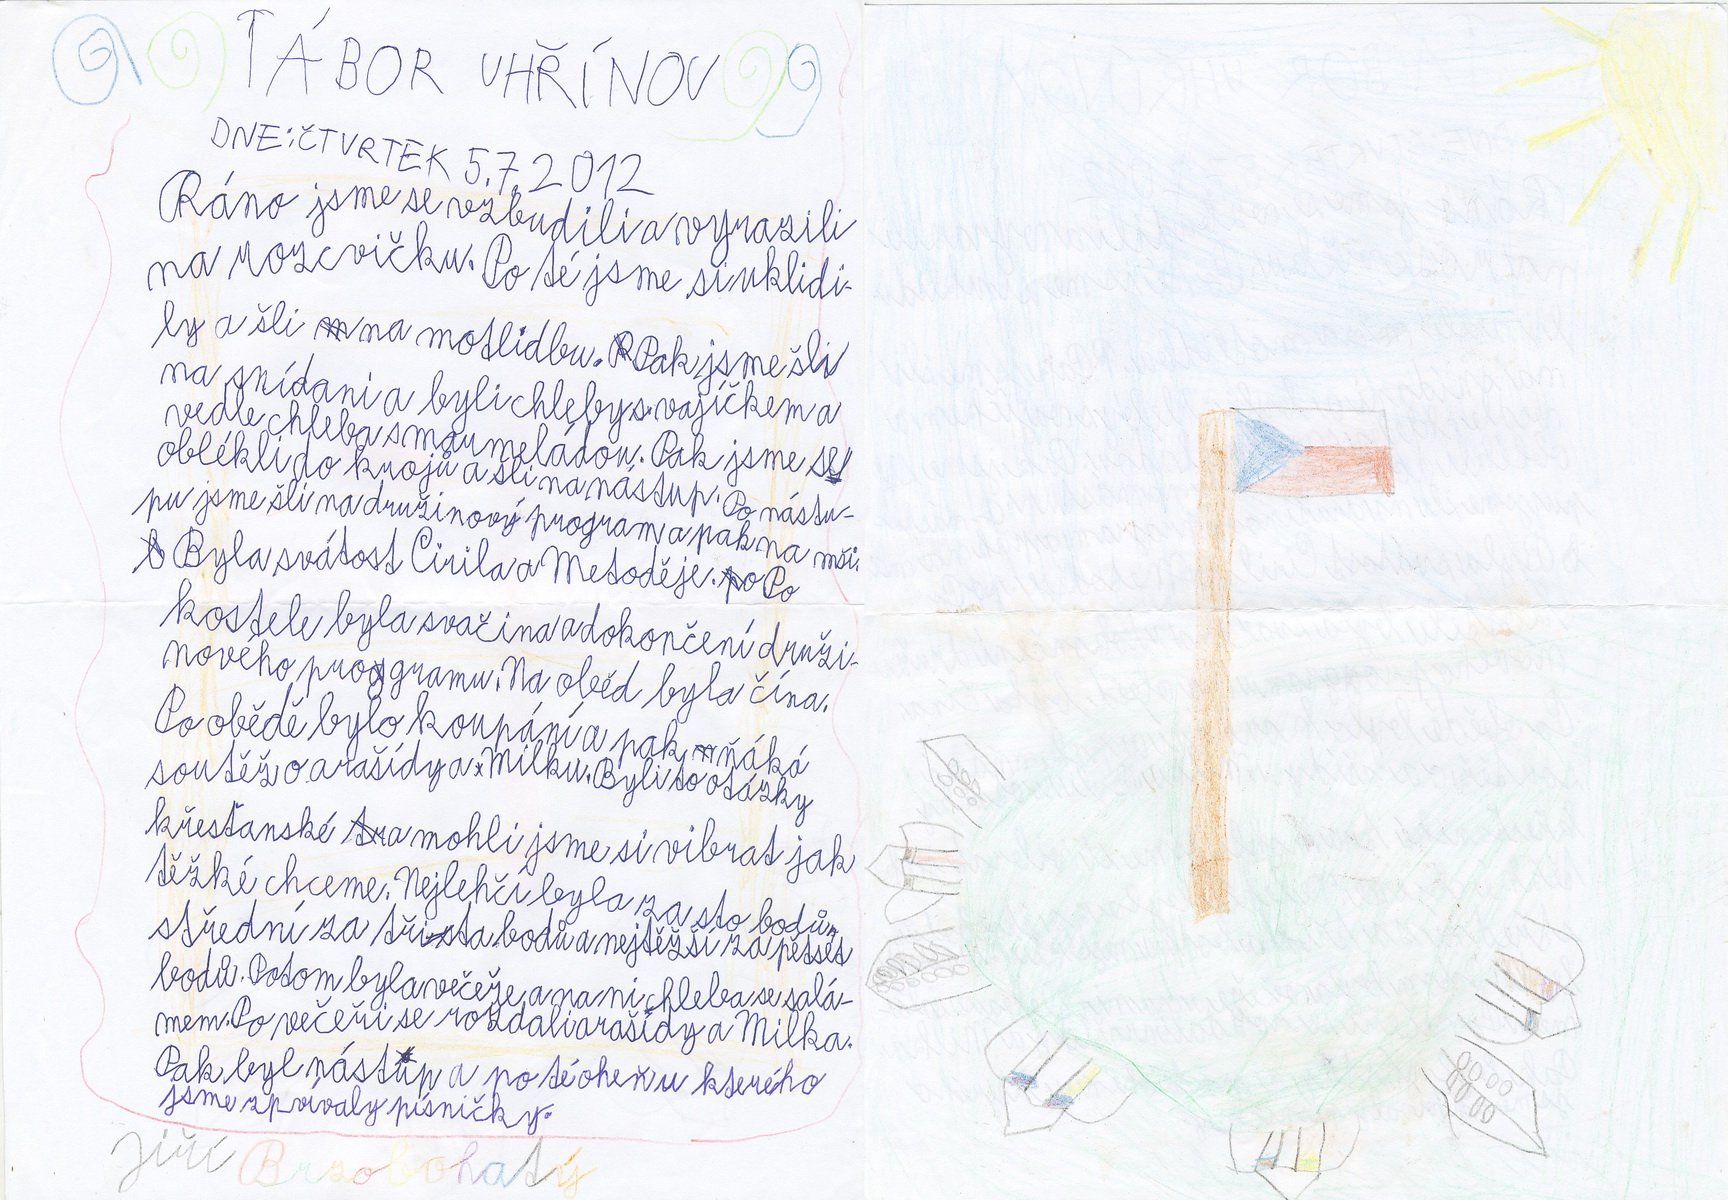 TÁBOR UHŘÍNOV
DNE: ČTVRTEK 5.7.2012
Ráno jsme se vzbudili a vyrazili
na rozcvičku. Po té jsme si uklidi-
ly a šli na motlidbu. Pak jsme šli
na snídani a byli chleby s vajíčkem a
vedle chleba s marmeládou. Pak jsme se
oblékli do krojů a šli na nástup. Po nástu-
pu jsme šli na družinový program a pak na mši.
Byla svátost Cirila a Metoděje. Po
kostele byla svačina a dokončení druži-
nového programu. Na oběd byla čína.
Po obědě bylo koupání a pak ňáká
soutěž o arašídy a Milku. Byli to otázky
křesťanské a mohli jsme si vibrat jak
těžké chceme. Nejlehčí byla za sto bodů,
střední za třista bodů a nejtěžší za pětset
bodů. Potom byla večeře a na ni chleba se salá-
mem. Po večeři se rozdali arašídy a Milka.
Pak byl nástup a po té oheň u kterého
jsme zpívaly písničky.
Jiří Brzobohatý